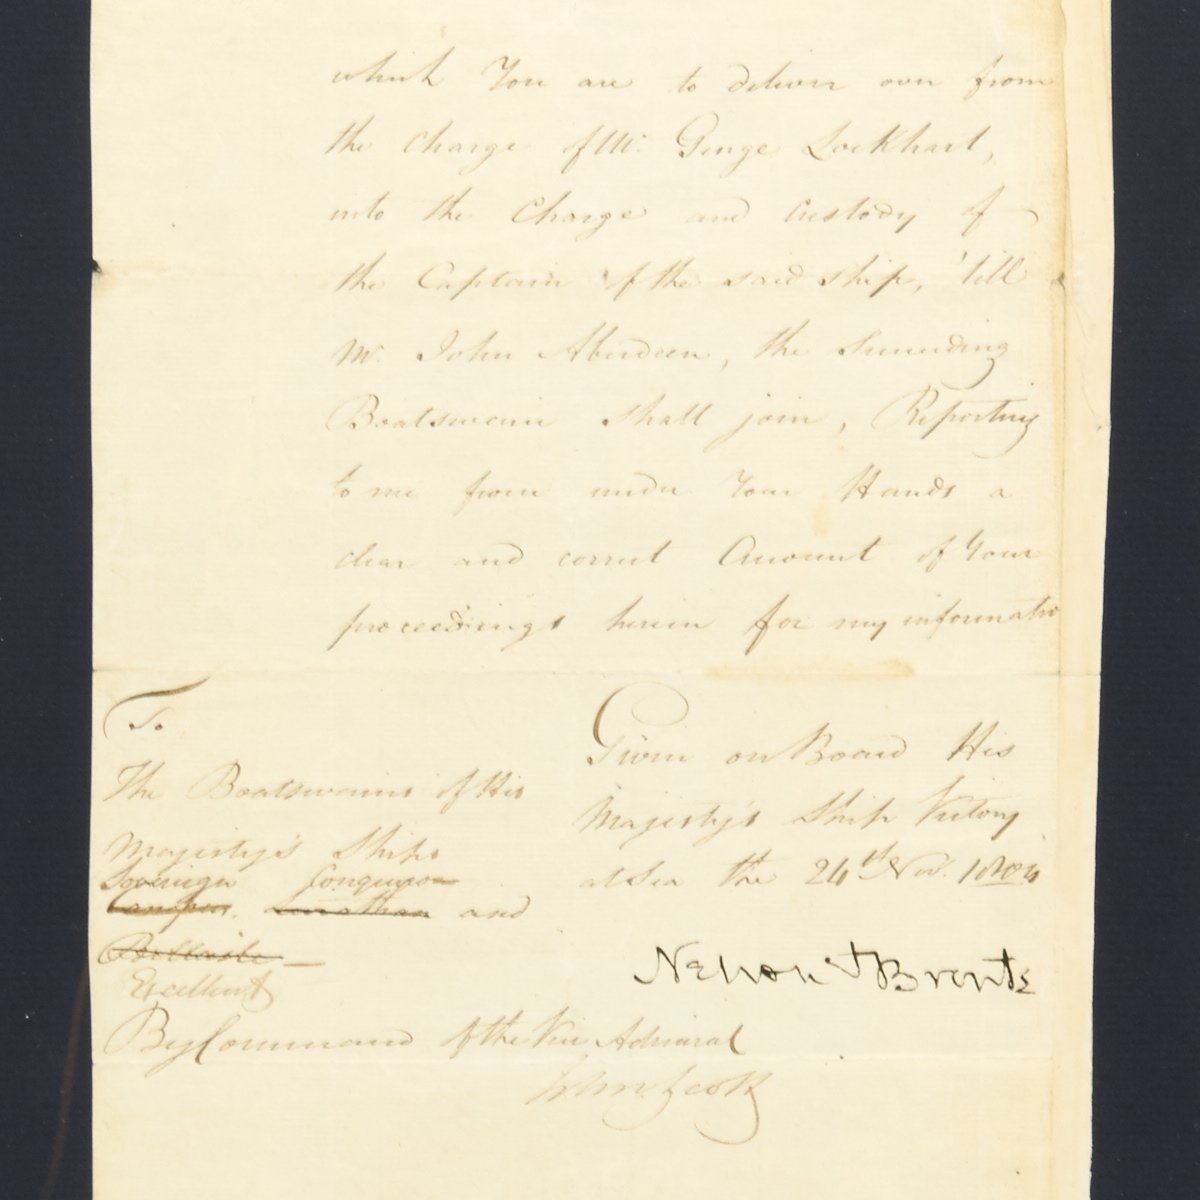 which You are to deliver over from
the Charge of Mr. George Lockhart,
into the Charge and Custody of
the Captain of the said Ship, 'till
Mr. John Aberdeen, the Succeeding
Boatswain shall join, Reporting
to me from under Your Hands a
clear and correct Account of Your
proceedings herein for my informatio
To
Given on Board His
The Boatswains of His
Majesty's Ship Victory
Majesty's Ships
at Sea the 24th Nov.
Sovereign Conqueror
Canopus, Leviathan and
Belleisle
Excellent
Nelson & Bronte
By Command of the Vice Admiral
John Scott